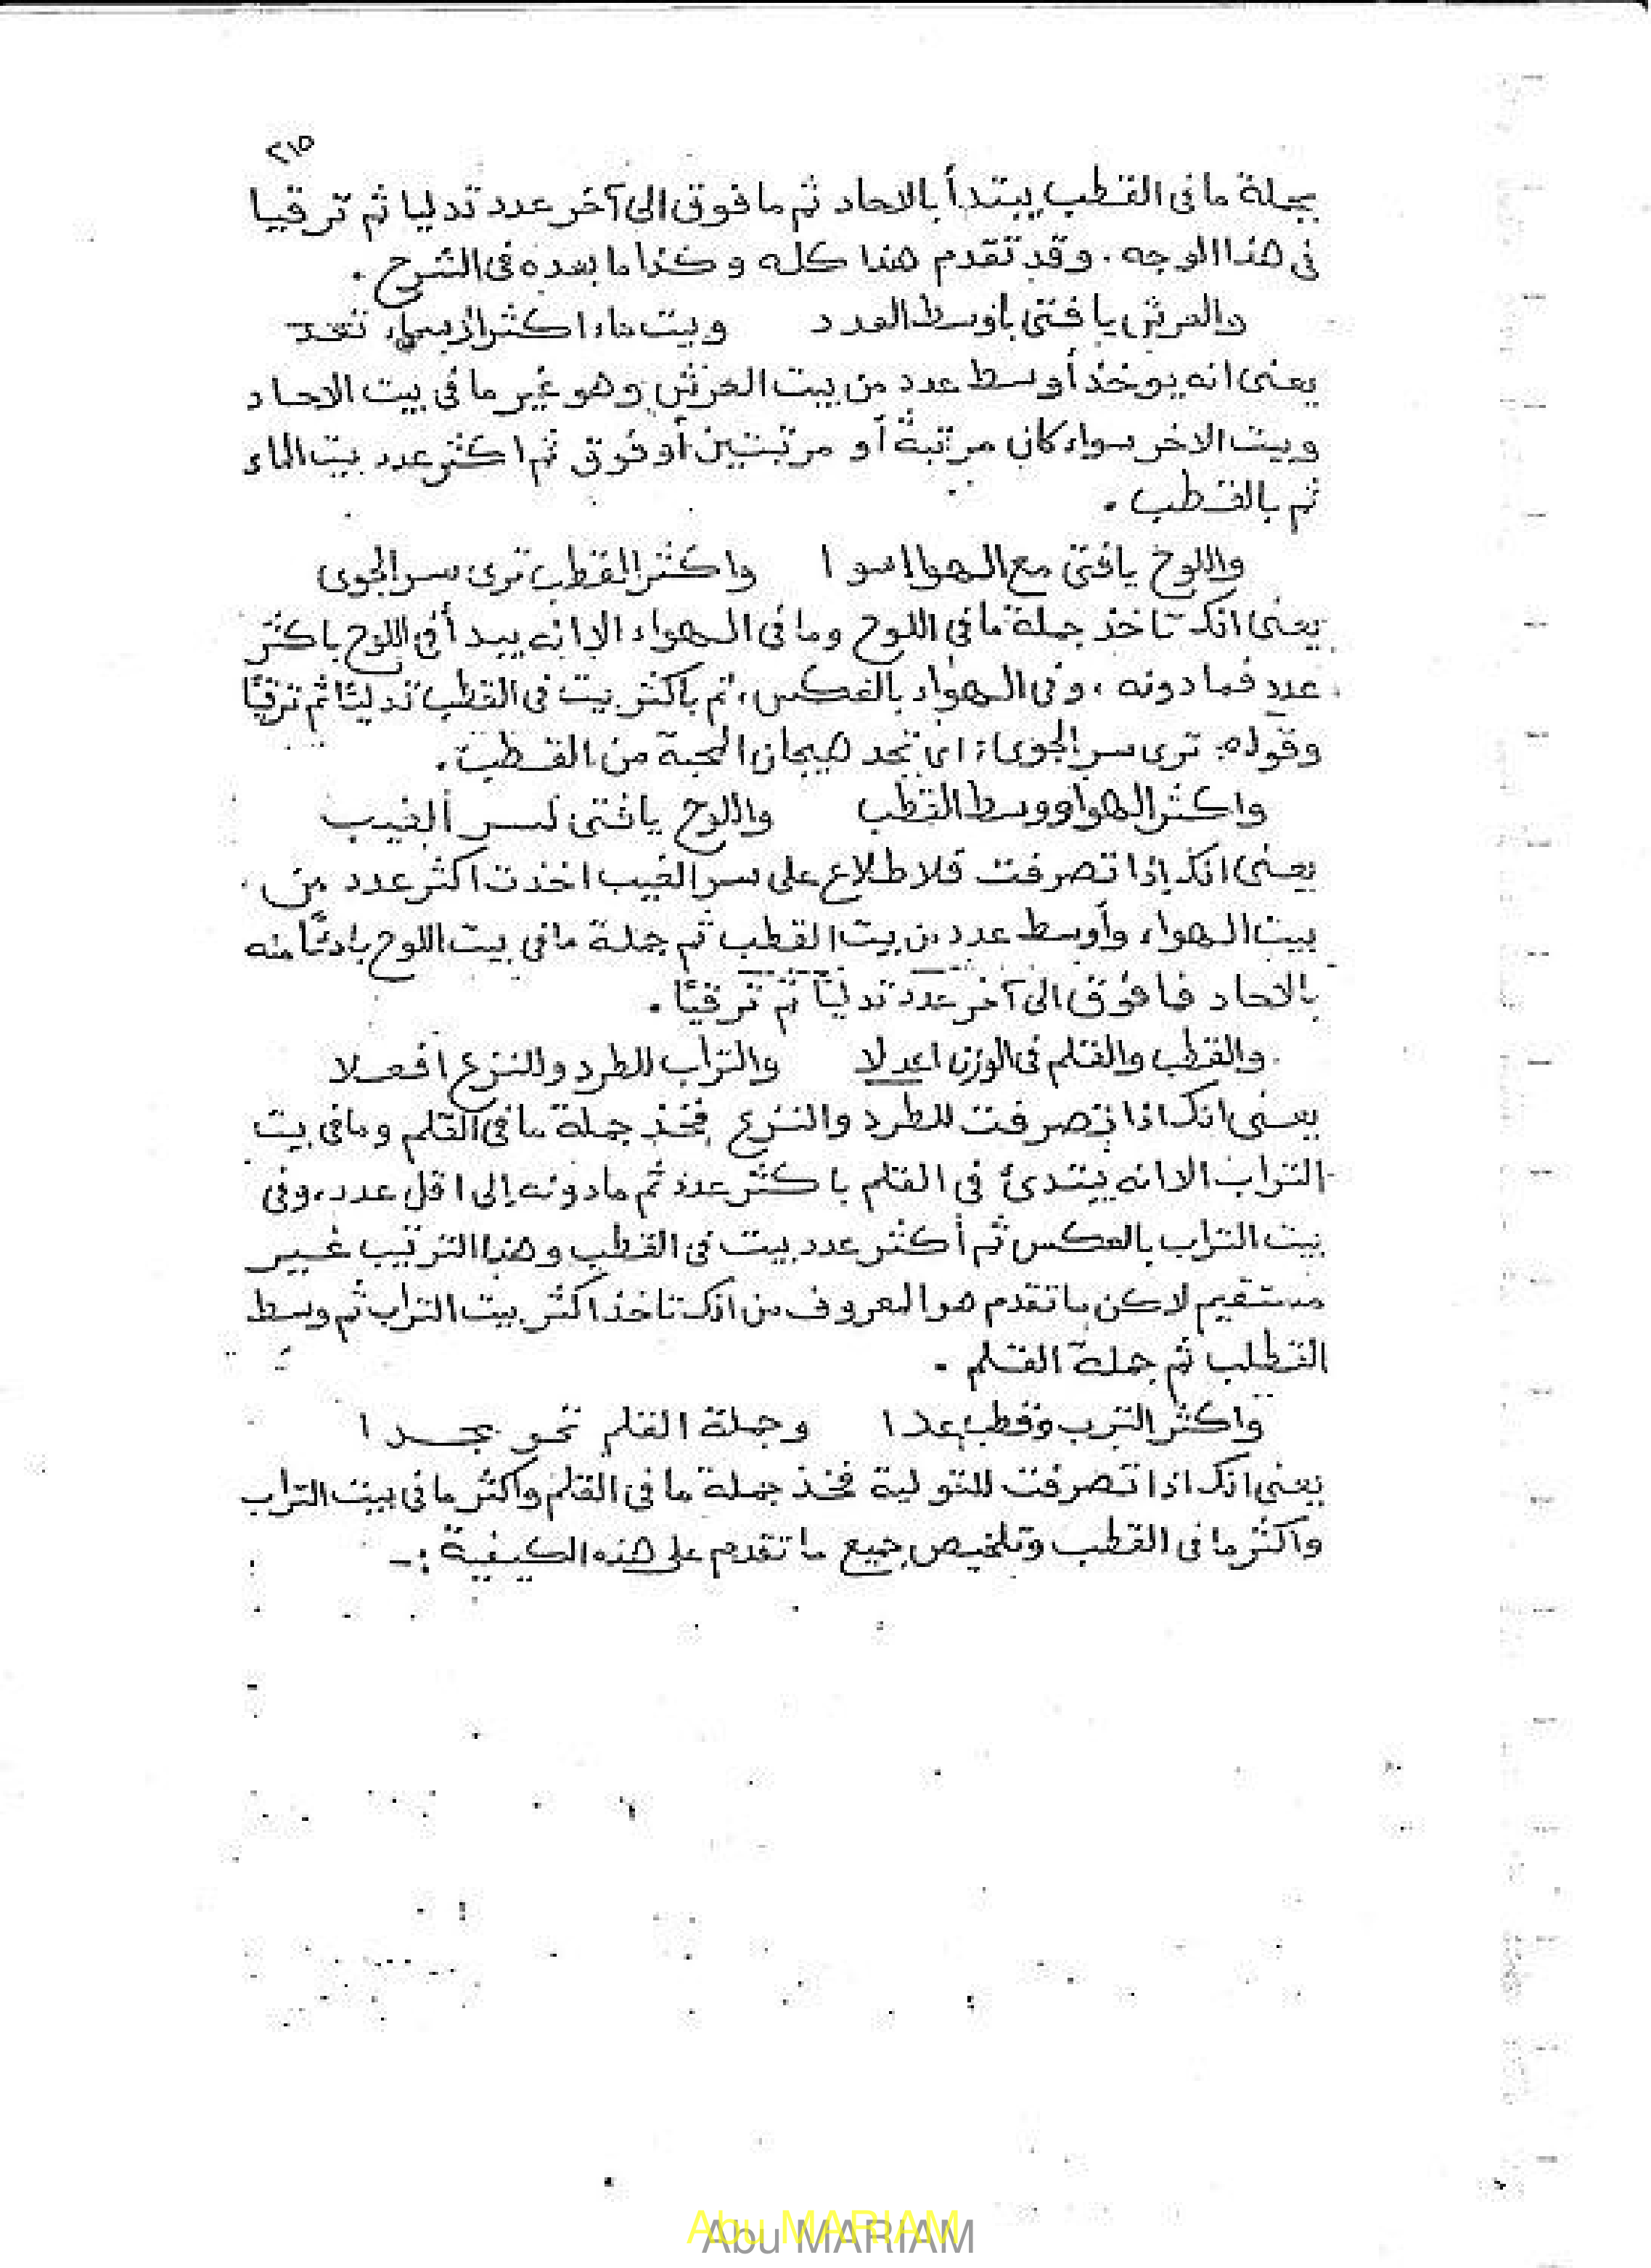 ٢١٥
بجملة ما فى القطب يبتدأ بالاحاد ثم ما فوق الى آخر عدد تدليا ثم ترقيا
فى هذا الوجه . وقد تقدم هذا كله وكذا ما بعده فى الشرح .
والعرش يا فتى بأوسط العدد وبيت ماء اكثر
يعنى انه يوخذ أوسط عدد من بيت العرش وهو غير ما فى بيت الاحاد
وبيت الاخر سواء كان مرتبة أو مرتبتين أو فوق ثم اكثر عدد بيت الماء
ثم بالقطب .
واللوح يا فتى مع الهوا سوا واكثر القطب ترى سر الجوى
يعنى انك تاخذ جملة ما فى اللوح وما فى الهواء الا انه يبدأ فى اللوح باكثر
عدد فما دونه ، وفى الهواء بالعكس ، ثم باكثر بيت فى القطب تدليًا ثم ترقيًا
وقوله ترى سر الجوى ، اى تجد هيجان المحبة من القطب .
واكثر الهوا ووسط القطب واللوح يا فتى لسر الغيب
يعنى انك إذا تصرفت للاطلاع على سر الغيب اخذت اكثر عدد من
بيت الهواء وأوسط عدد من بيت القطب ثم جملة ما فى بيت اللوح بادئًا منه
بالاحاد فما فوق الى آخر عدد تدليًا ثم ترقيًا .
والقطب والقلم فى الوزن اعدلا والتراب للطرد وللنزع افعلا
يعنى انك اذا تصرفت للطرد والنزع فخذ جملة ما فى القلم وما فى بيت
التراب الا انه يبتدئ فى القلم باكثر عدد ثم ما دونه إلى اقل عدد ، وفى
بيت التراب بالعكس ثم أكثر عدد بيت فى القطب وهذا الترتيب غير
مستقيم لاكن ما تقدم هو المعروف من انك تاخذ اكثر بيت التراب ثم وسط
القطب ثم جملة القلم .
واكثر الترب وقطب عدا وجملة القلم نحو مجدا
يعنى انك اذا تصرفت للتولية فخذ جملة ما فى القلم واكثر ما فى بيت التراب
واكثر ما فى القطب وتلخيص جميع ما تقدم على هذه الكيفية : -
Abu MARIAM
Abu MARIAM